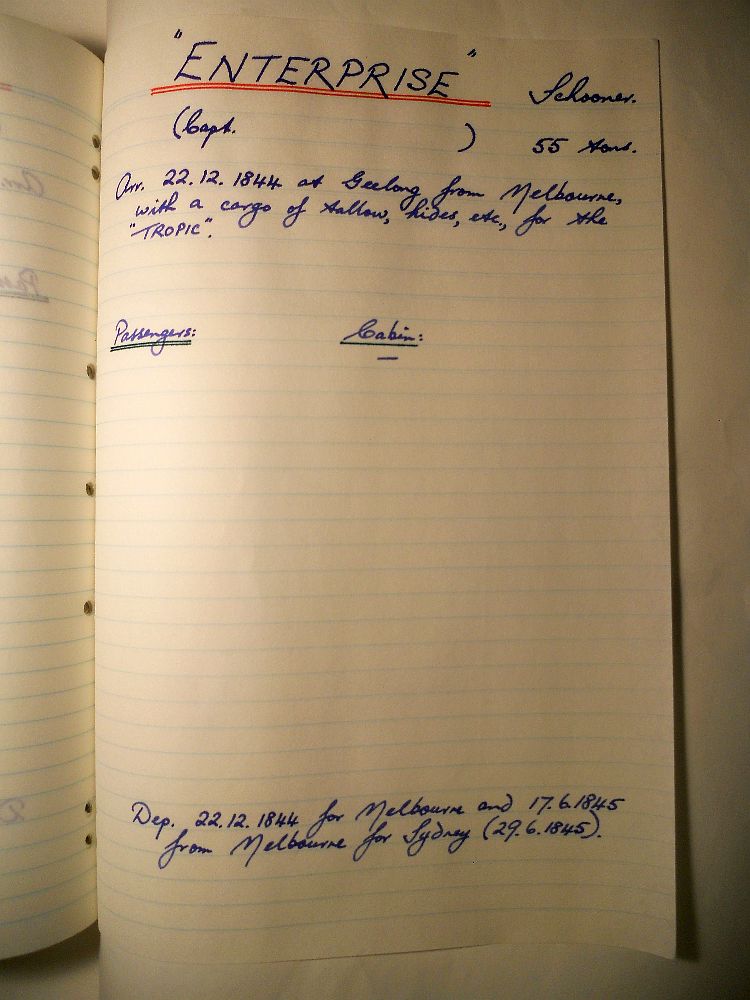 "ENTERPRISE"
Schooner.
(Capt. )
55 tons.
Arr. 22.12.1844 at Geelong from Melbourne,
with a cargo of tallow, hides, etc., for the
"TROPIC".
Passengers: Cabin:
—
Dep. 22.12.1844 for Melbourne and 17.6.1845
from Melbourne for Sydney (29.6.1845).